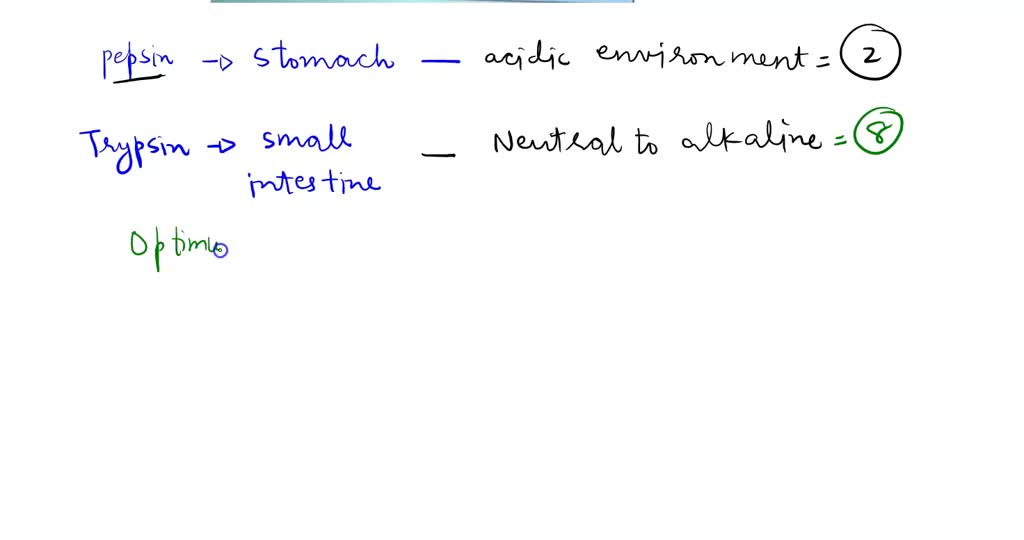 pepsin → stomach — acidic environment = 2
Trypsin → small intestine — Neutral to alkaline = 8
Optimu